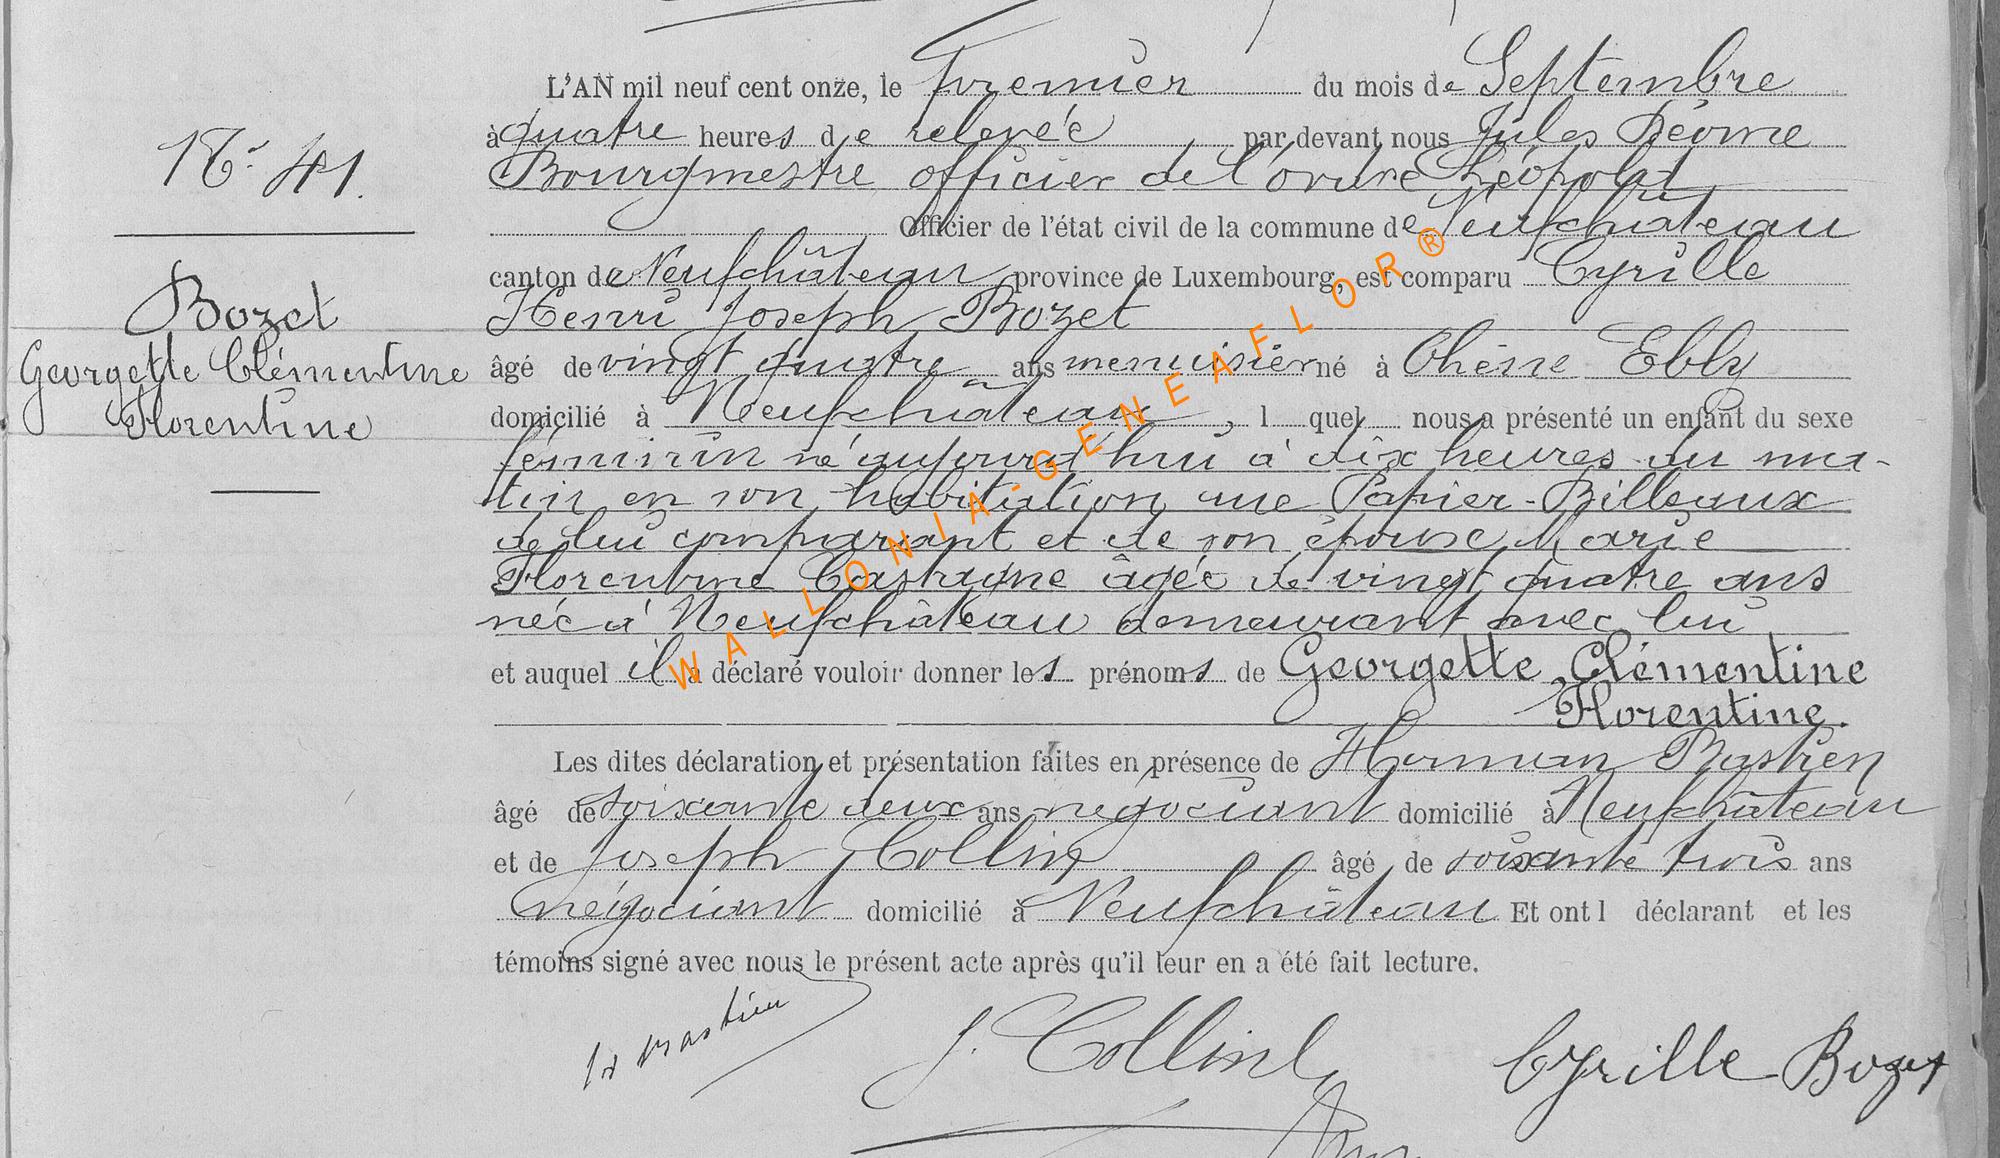 N° 41.
Bozet
Georgette Clémentine
Florentine
L'AN mil neuf cent onze, le premier du mois de Septembre
à quatre heures de relevée par devant nous Jules
Bourgmestre officier de l'ordre Léopold
Officier de l'état civil de la commune de Neufchâteau
canton de Neufchâteau province de Luxembourg, est comparu Cyrille
Henri Joseph Bozet
âgé de vingt quatre ans menuisier né à Ebly
domicilié à Neufchâteau, l quel nous a présenté un enfant du sexe
féminin né aujourd'hui à dix heures du ma-
tin en son habitation rue Papier-Billeaux
de lui comparant et de son épouse Marie
Florentine Castagne âgée de vingt quatre ans
née à Neufchâteau demeurant avec lui
et auquel il a déclaré vouloir donner les prénoms de Georgette, Clémentine
Florentine.
Les dites déclaration et présentation faites en présence de Herman Bastien
âgé de soixante deux ans négociant domicilié à Neufchâteau
et de Joseph Collin âgé de soixante trois ans
négociant domicilié à Neufchâteau Et ont l déclarant et les
témoins signé avec nous le présent acte après qu'il leur en a été fait lecture.
Bastien
J. Collin
Cyrille Bozet
WALLONIA-GENEAFLOR®